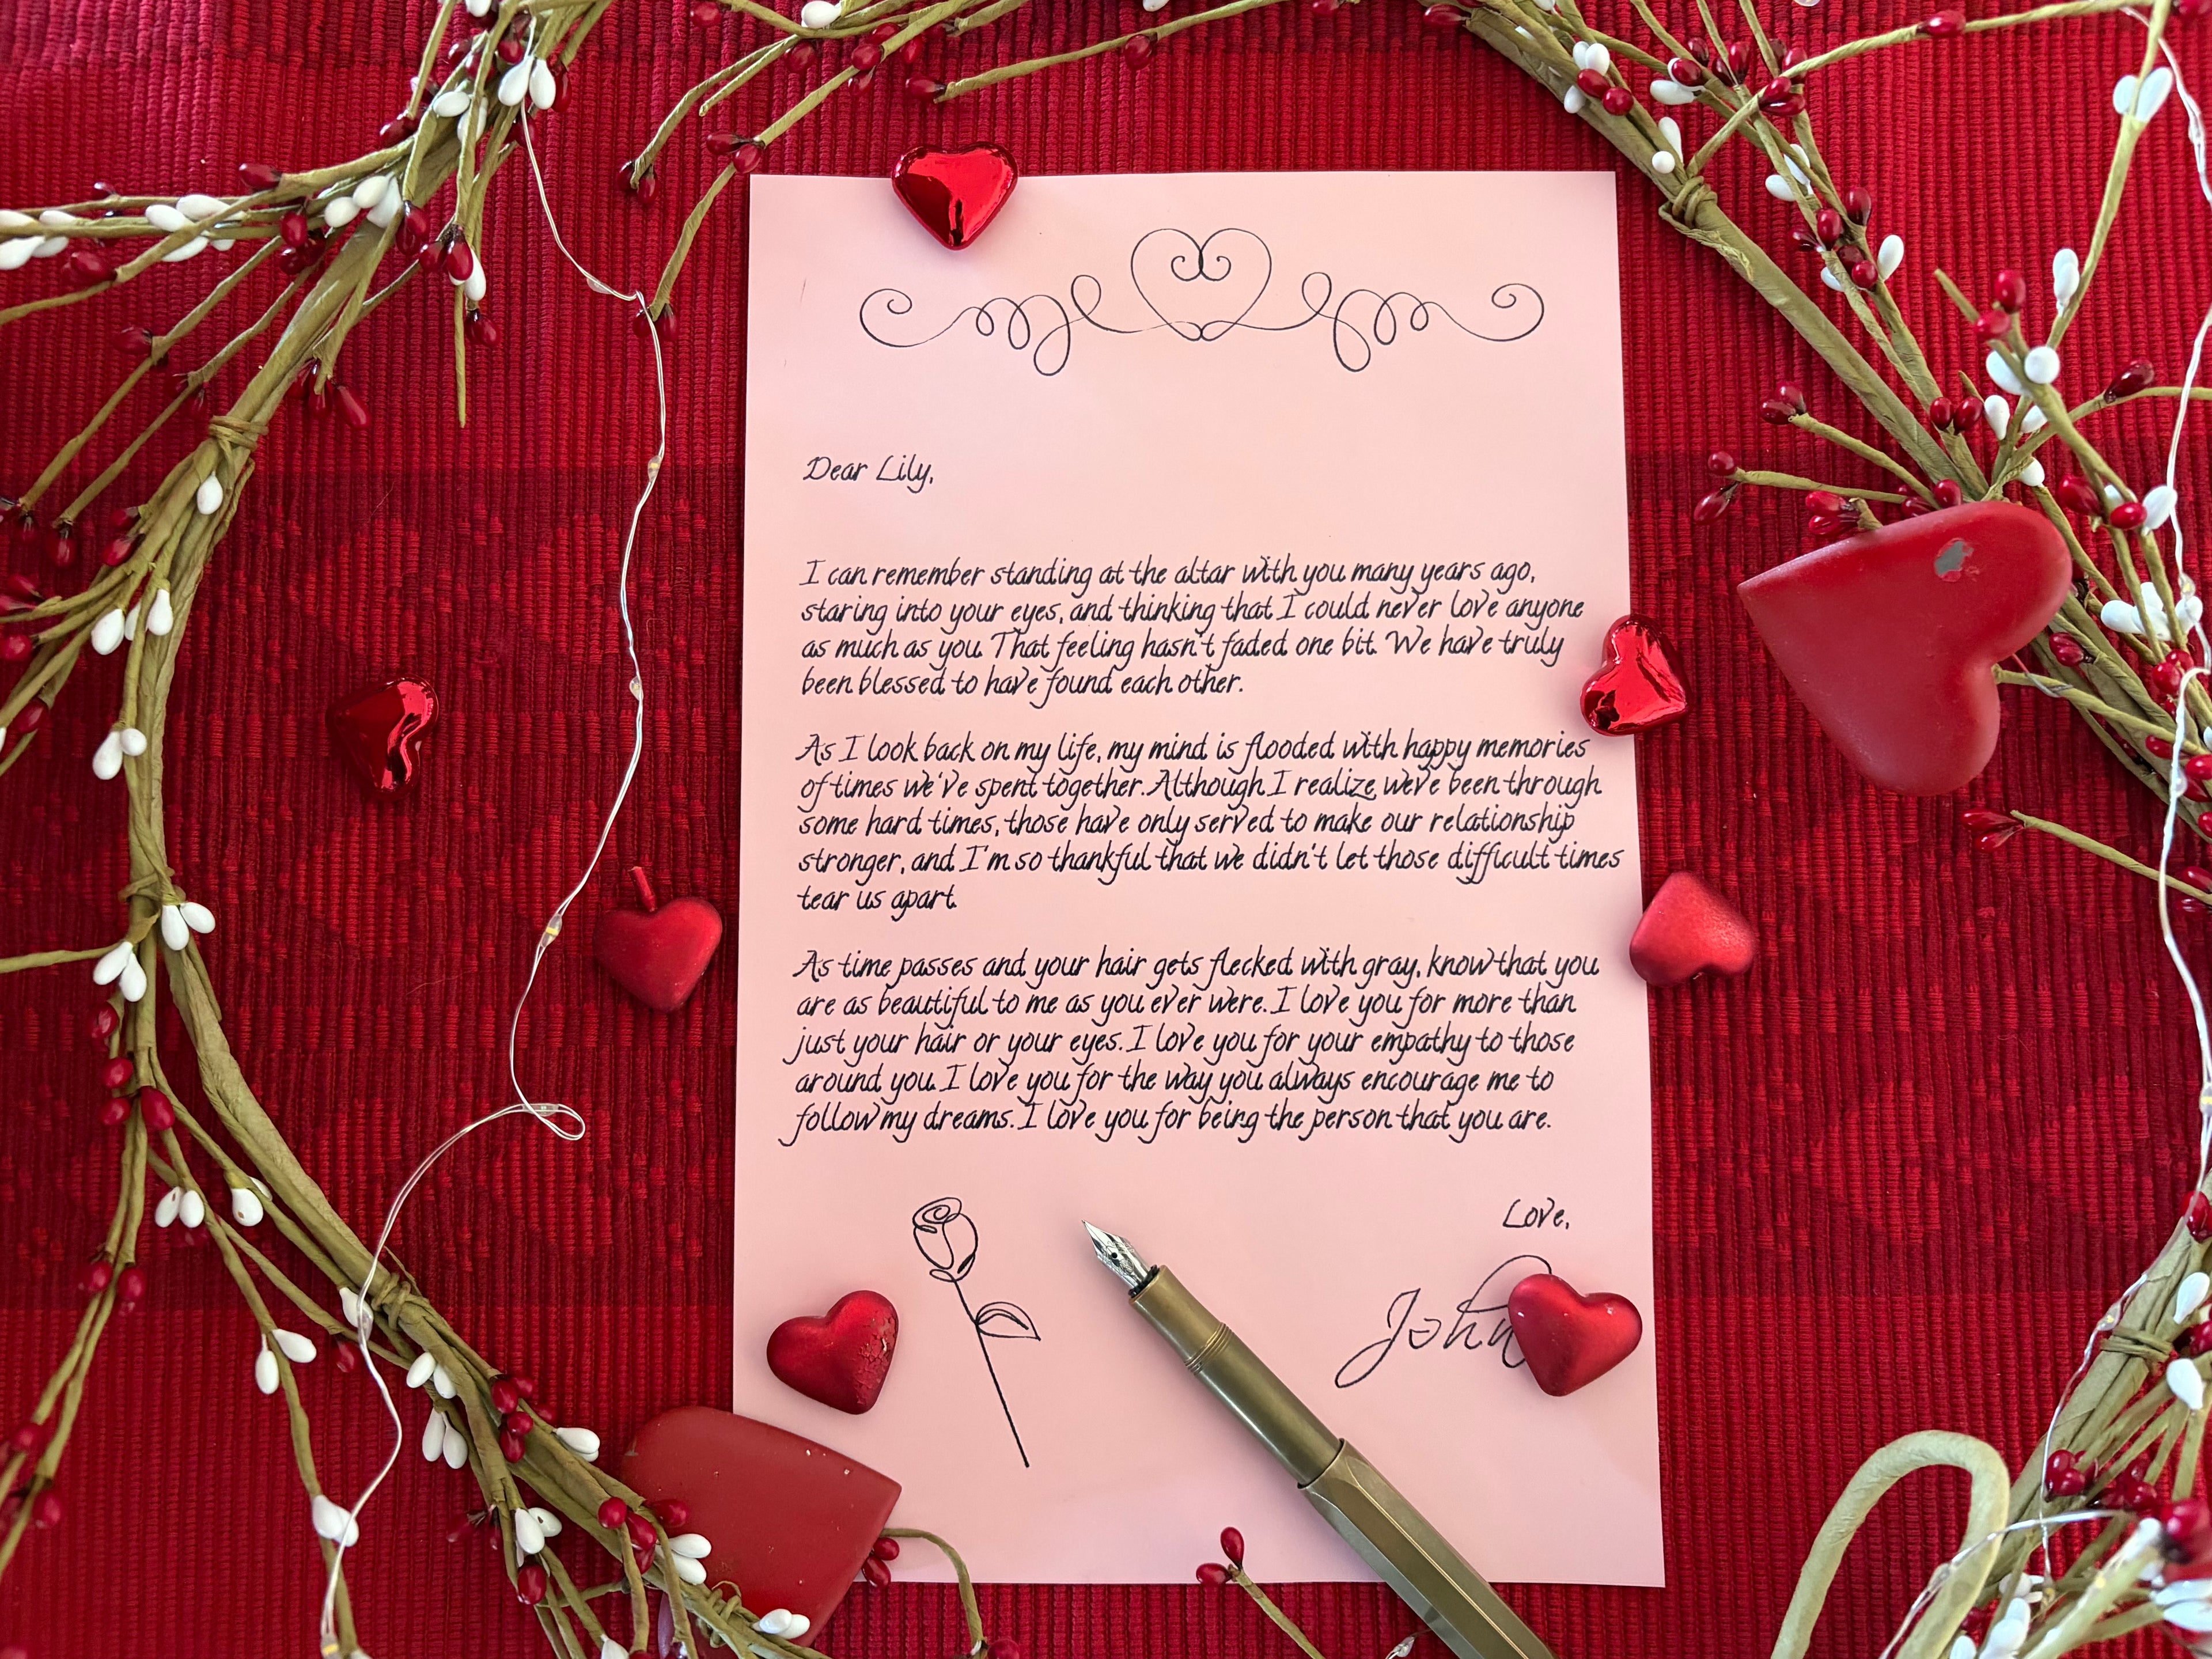 Dear Lily,
I can remember standing at the altar with you many years ago,
staring into your eyes, and thinking that I could never love anyone
as much as you. That feeling hasn't faded one bit. We have truly
been blessed to have found each other.
As I look back on my life, my mind is flooded with happy memories
of times we've spent together. Although I realize we've been through
some hard times, those have only served to make our relationship
stronger, and I'm so thankful that we didn't let those difficult times
tear us apart.
As time passes and your hair gets flecked with gray, know that you
are as beautiful to me as you ever were. I love you for more than
just your hair or your eyes. I love you for your empathy to those
around you. I love you for the way you always encourage me to
follow my dreams. I love you for being the person that you are.
Love,
John